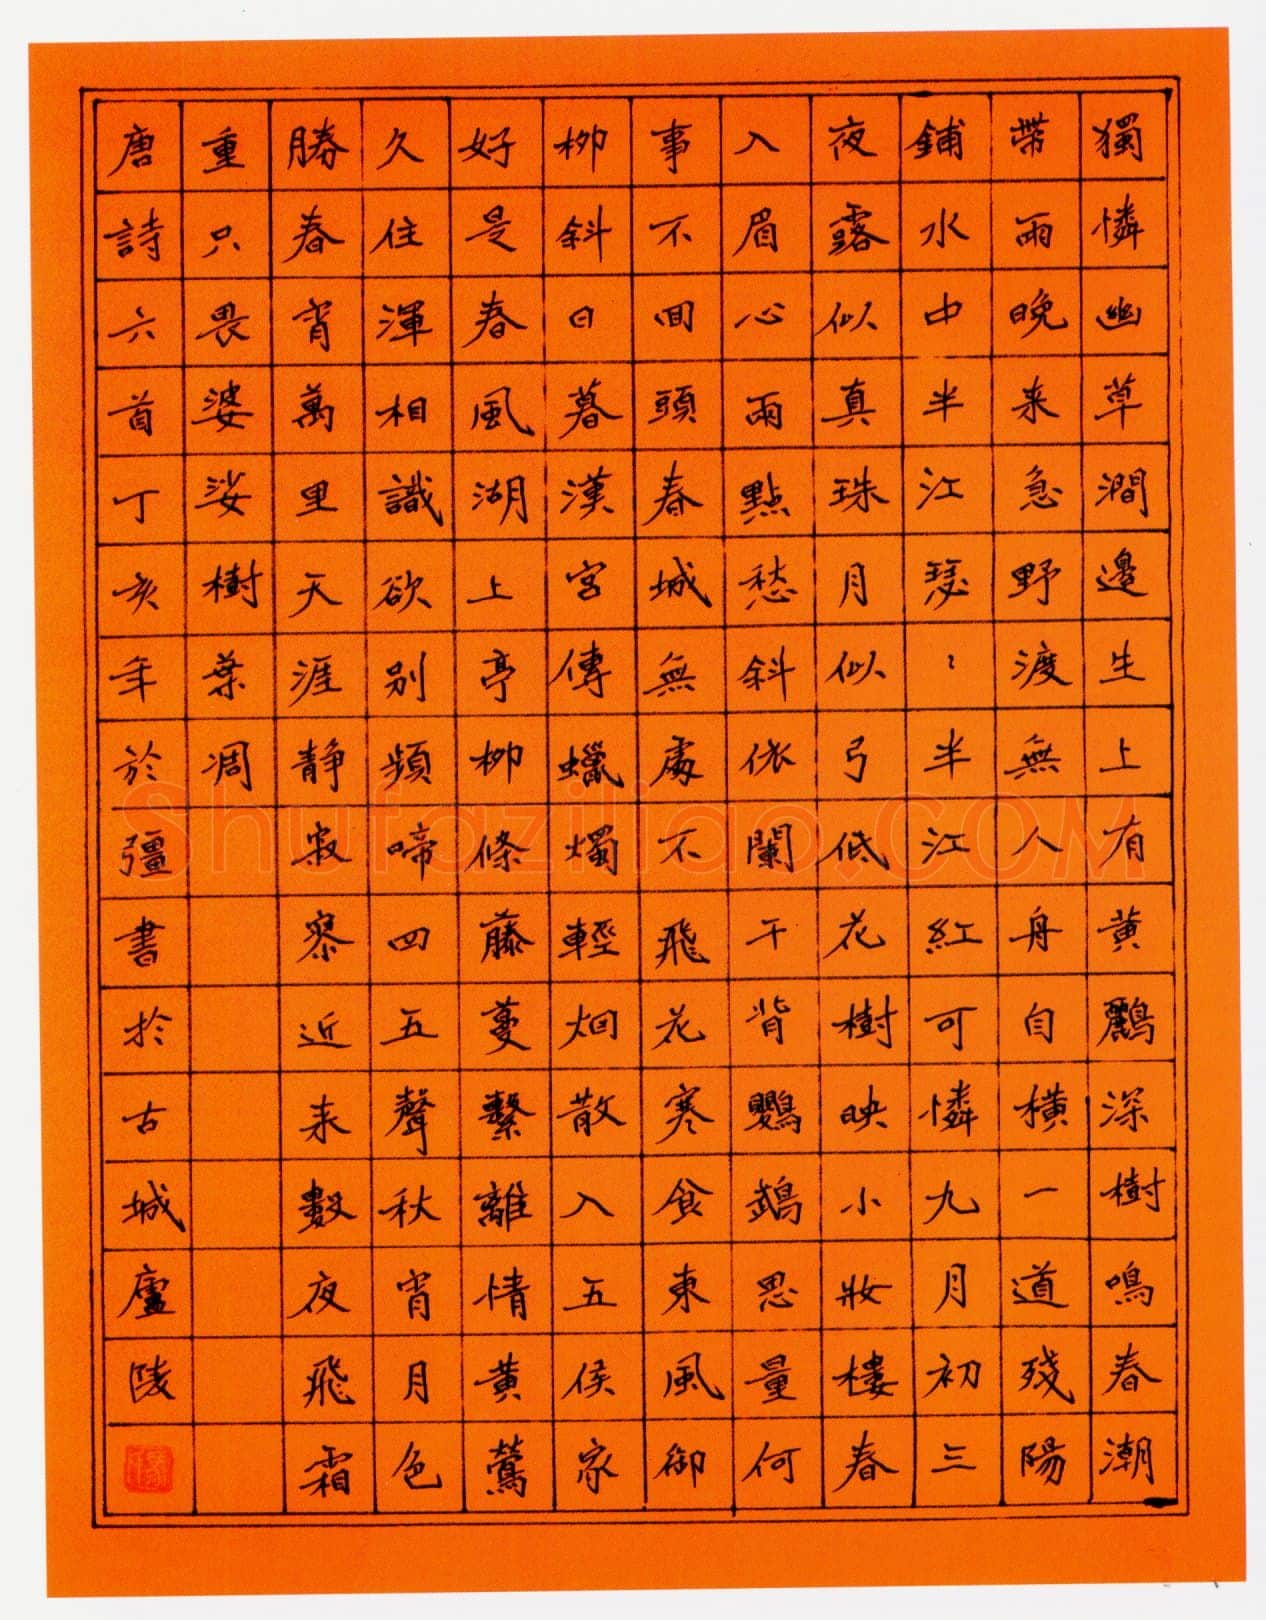 獨憐幽草澗邊生上有黃鸝深樹鳴春潮
帶雨晚来急野渡無人舟自橫一道殘陽
鋪水中半江瑟〻半江紅可憐九月初三
夜露似真珠月似弓低花樹映小妝樓春
入眉心兩點愁斜依闌干背鸚鵡思量何
事不回頭春城無處不飛花寒食東風御
柳斜日暮漢宮傳蠟燭輕烟散入五侯家
好是春風湖上亭柳條藤蔓繫離情黃鶯
久住渾相識欲別頻啼四五聲秋宵月色
勝春宵萬里天涯靜寂寥近来數夜飛霜
重只畏婆娑樹葉凋
唐詩六首丁亥年於彊書於古城廬陵
Shufaziliao.COM